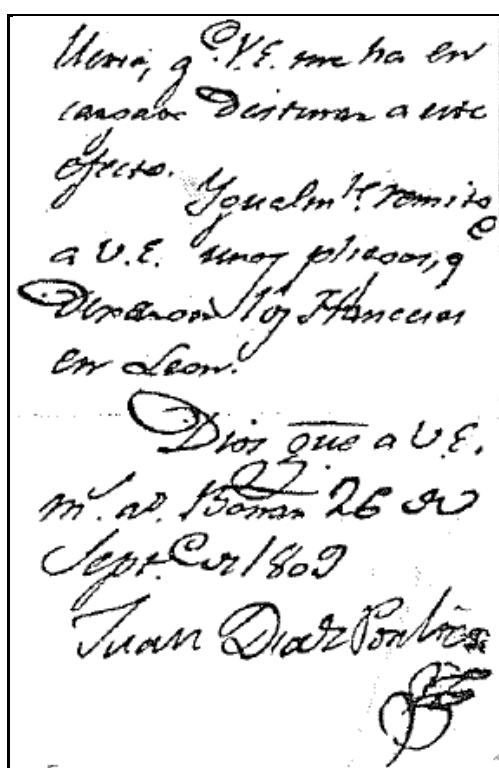 q.e V.E. me ha en
cargado Destinar a este
efecto.
Ygualm.te remito
a V.E. unos pliegos, q.e
Dexaron los Franceses
en Leon.
Dios gūe a V.E.
m.s a.s Boñar 26 de
Sept.e de 1809
Juan Diaz Porlier